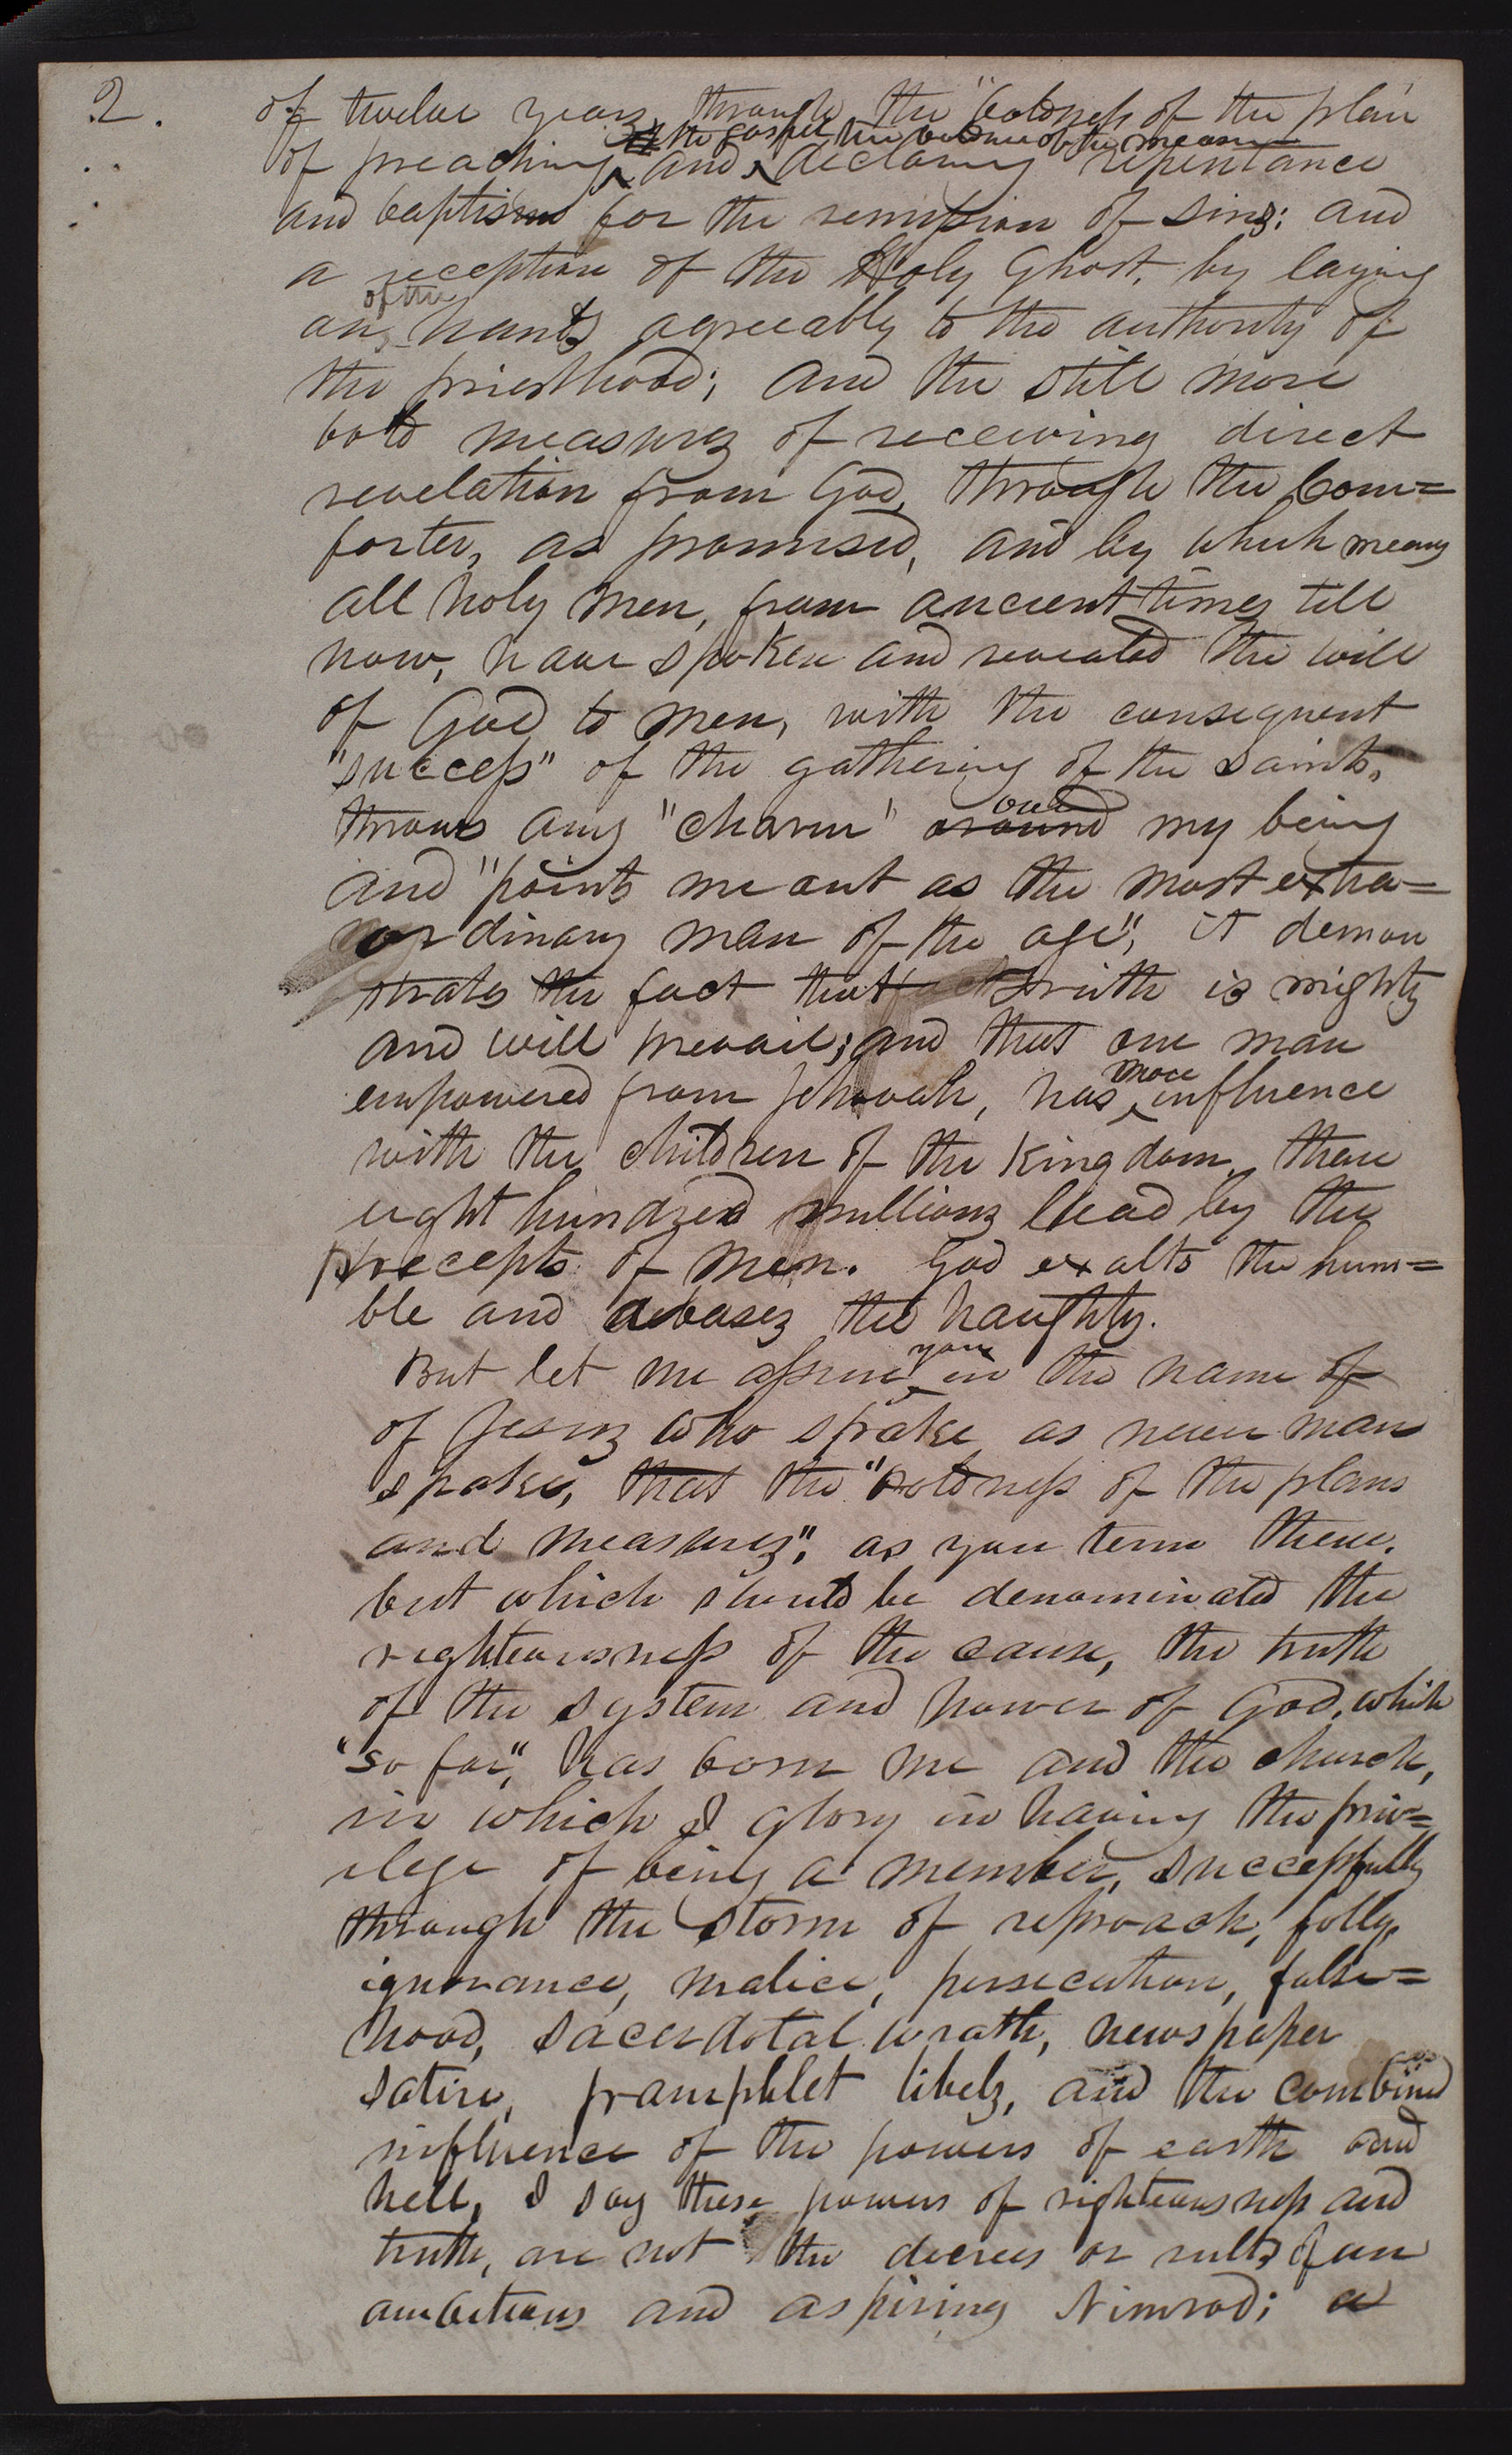 2.
of twelve years, through the "boldness of the plan
the gospel the boldness of the means
of preaching and declaring repentance
and baptism for the remission of sins: and
a reception of the Holy Ghost, by laying
of the
on hands agreeably to the authority of
the priesthood; and the still more
bold measures of receiving direct
revelation from God, through the Com=
forter, as promised, and by which means
all holy men, from ancient times till
now, have spoken and revealed the will
of God to men, with the consequent
"success" of the gathering of the saints,
throws any "charm" around my being
and "points me out as the most extra=
ordinary man of the age", it demon
strates the fact that truth is mighty
and will prevail; and that one man
more
empowered from Jehovah, has influence
with the children of the kingdom, than
eight hundred millions lead by the
precepts of men. God exalts the hum=
ble and debases the haughty.
you
But let me assure in the name of
of Jesus who spake as never man
spake, that the "boldness of the plans
and measures", as you term them,
but which should be denominated the
righteousness of the cause, the truth
of the system and power of God, which
"so far", has born me and the church,
in which I glory in having the priv=
ilege of being a member, successfully
through the storm of reproach, folly,
ignorance, malice, persecution, false=
hood, sacerdotal wrath, newspaper
satire, pamphlet libels, and the combined
influence of the powers of earth and
hell, I say these powers of righteousness and
truth, are not the decrees or rules of an
ambitious and aspiring Nimrod; a